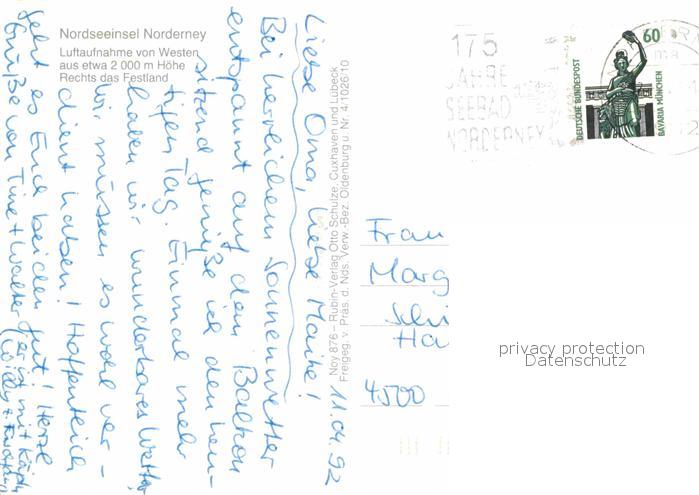 Nordseeinsel Norderney
Luftaufnahme von Westen
aus etwa 2 000 m Höhe
Rechts das Festland
11.04.92
Liebe Oma, liebe Maike!
Bei herrlichem Sonnenwetter
entspannt auf dem Balkon
sitzend genieße ich den heu-
tigen Tag. Einmal mehr
haben wir wunderbares Wetter
wir müssen es wohl ver-
dient haben! Hoffentlich
geht es Euch beiden gut! Herzl
Grüße von Tine + Walter
Noy 876 – Rubin-Verlag Otto Schulze, Cuxhaven und Lübeck
Freigeg. v. Präs. d. Nds. Verw.-Bez. Oldenburg u. Nr. 4/1026/10
175
JAHRE
SEEBAD
NORDERNEY
60
DEUTSCHE BUNDESPOST
BAVARIA MÜNCHEN
Frau
Marg
Ha
4500
privacy protection
Datenschutz